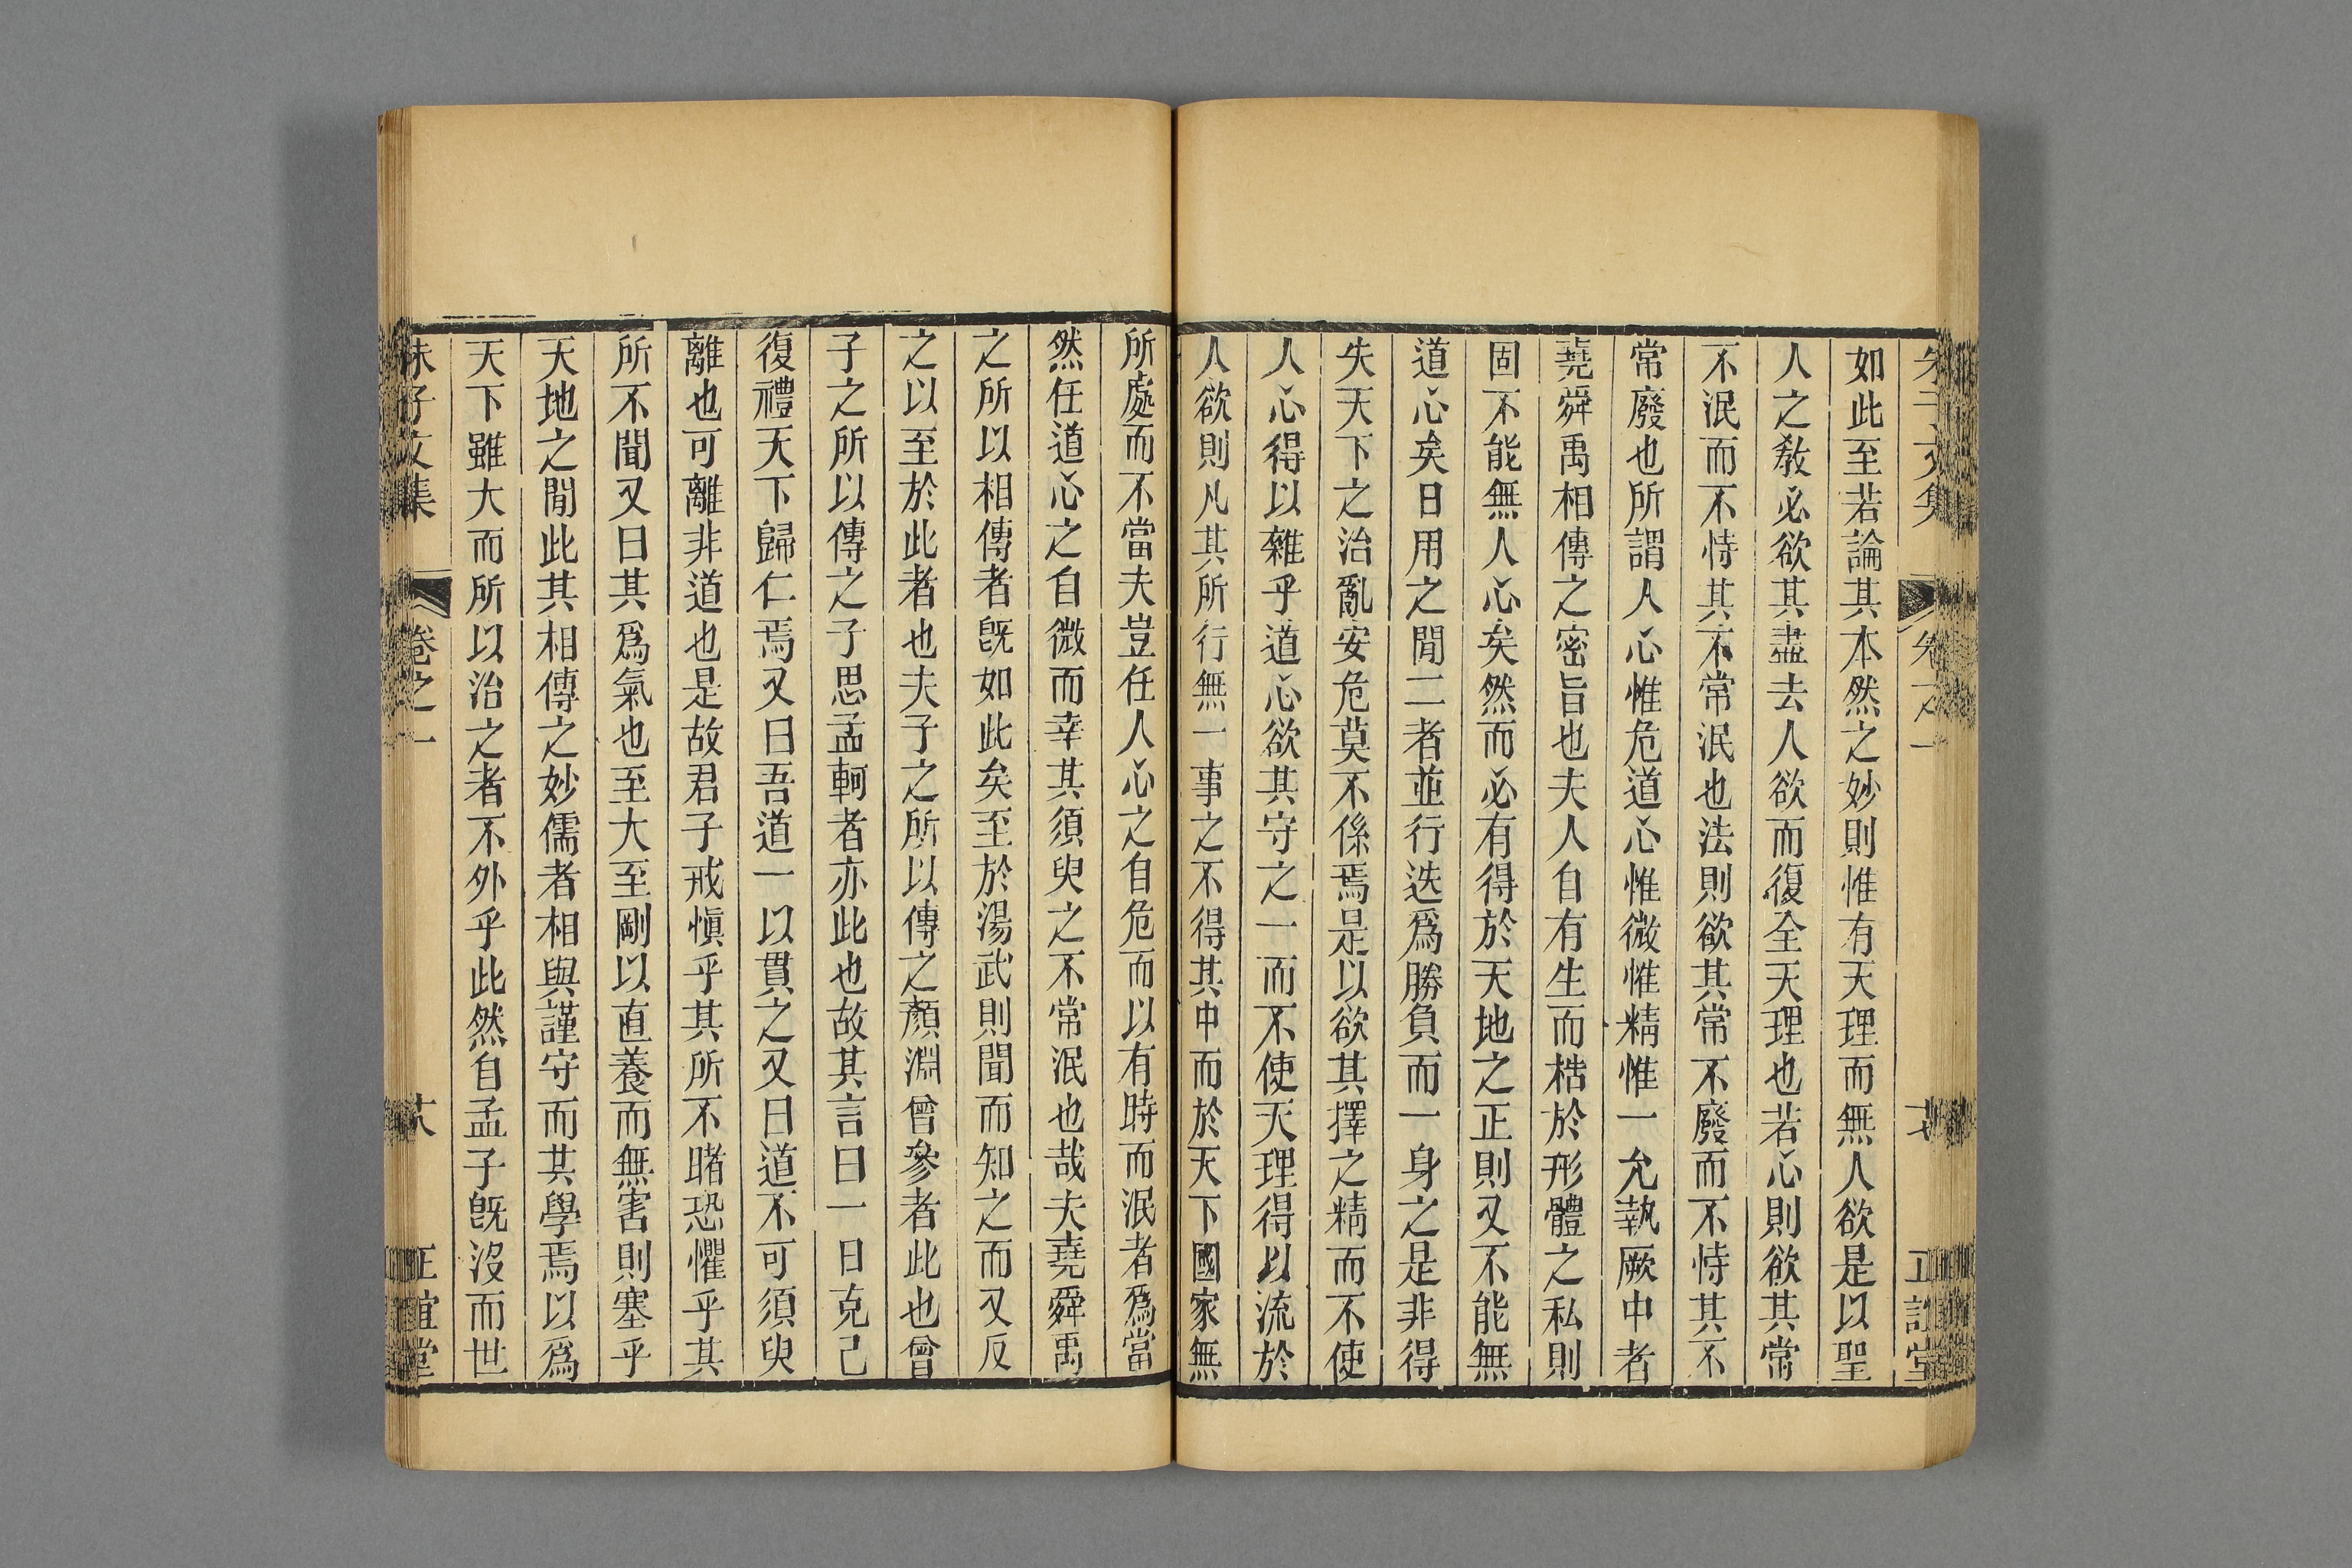 朱子文集 卷之一 正誼堂
如此至若論其本然之妙則惟有天理而無人欲是以聖
人之教必欲其盡去人欲而復全天理也若心則欲其常
不泯而不恃其不常泯也法則欲其常不廢而不恃其不
常廢也所謂人心惟危道心惟微惟精惟一允執厥中者
堯舜禹相傳之密旨也夫人自有生而梏於形體之私則
固不能無人心矣然而必有得於天地之正則又不能無
道心矣日用之閒二者並行迭爲勝負而一身之是非得
失天下之治亂安危莫不係焉是以欲其擇之精而不使
人心得以雜乎道心欲其守之一而不使天理得以流於
人欲則凡其所行無一事之不得其中而於天下國家無
所處而不當夫豈任人心之自危而以有時而泯者爲當
然任道心之自微而幸其須臾之不常泯也哉夫堯舜禹
之所以相傳者旣如此矣至於湯武則聞而知之而又反
之以至於此者也夫子之所以傳之顏淵曾參者此也曾
子之所以傳之子思孟軻者亦此也故其言曰一日克己
復禮天下歸仁焉又曰吾道一以貫之又曰道不可須臾
離也可離非道也是故君子戒愼乎其所不睹恐懼乎其
所不聞又曰其爲氣也至大至剛以直養而無害則塞乎
天地之閒此其相傳之妙儒者相與謹守而其學焉以爲
天下雖大而所以治之者不外乎此然自孟子旣沒而世
朱子文集 卷之一 正誼堂